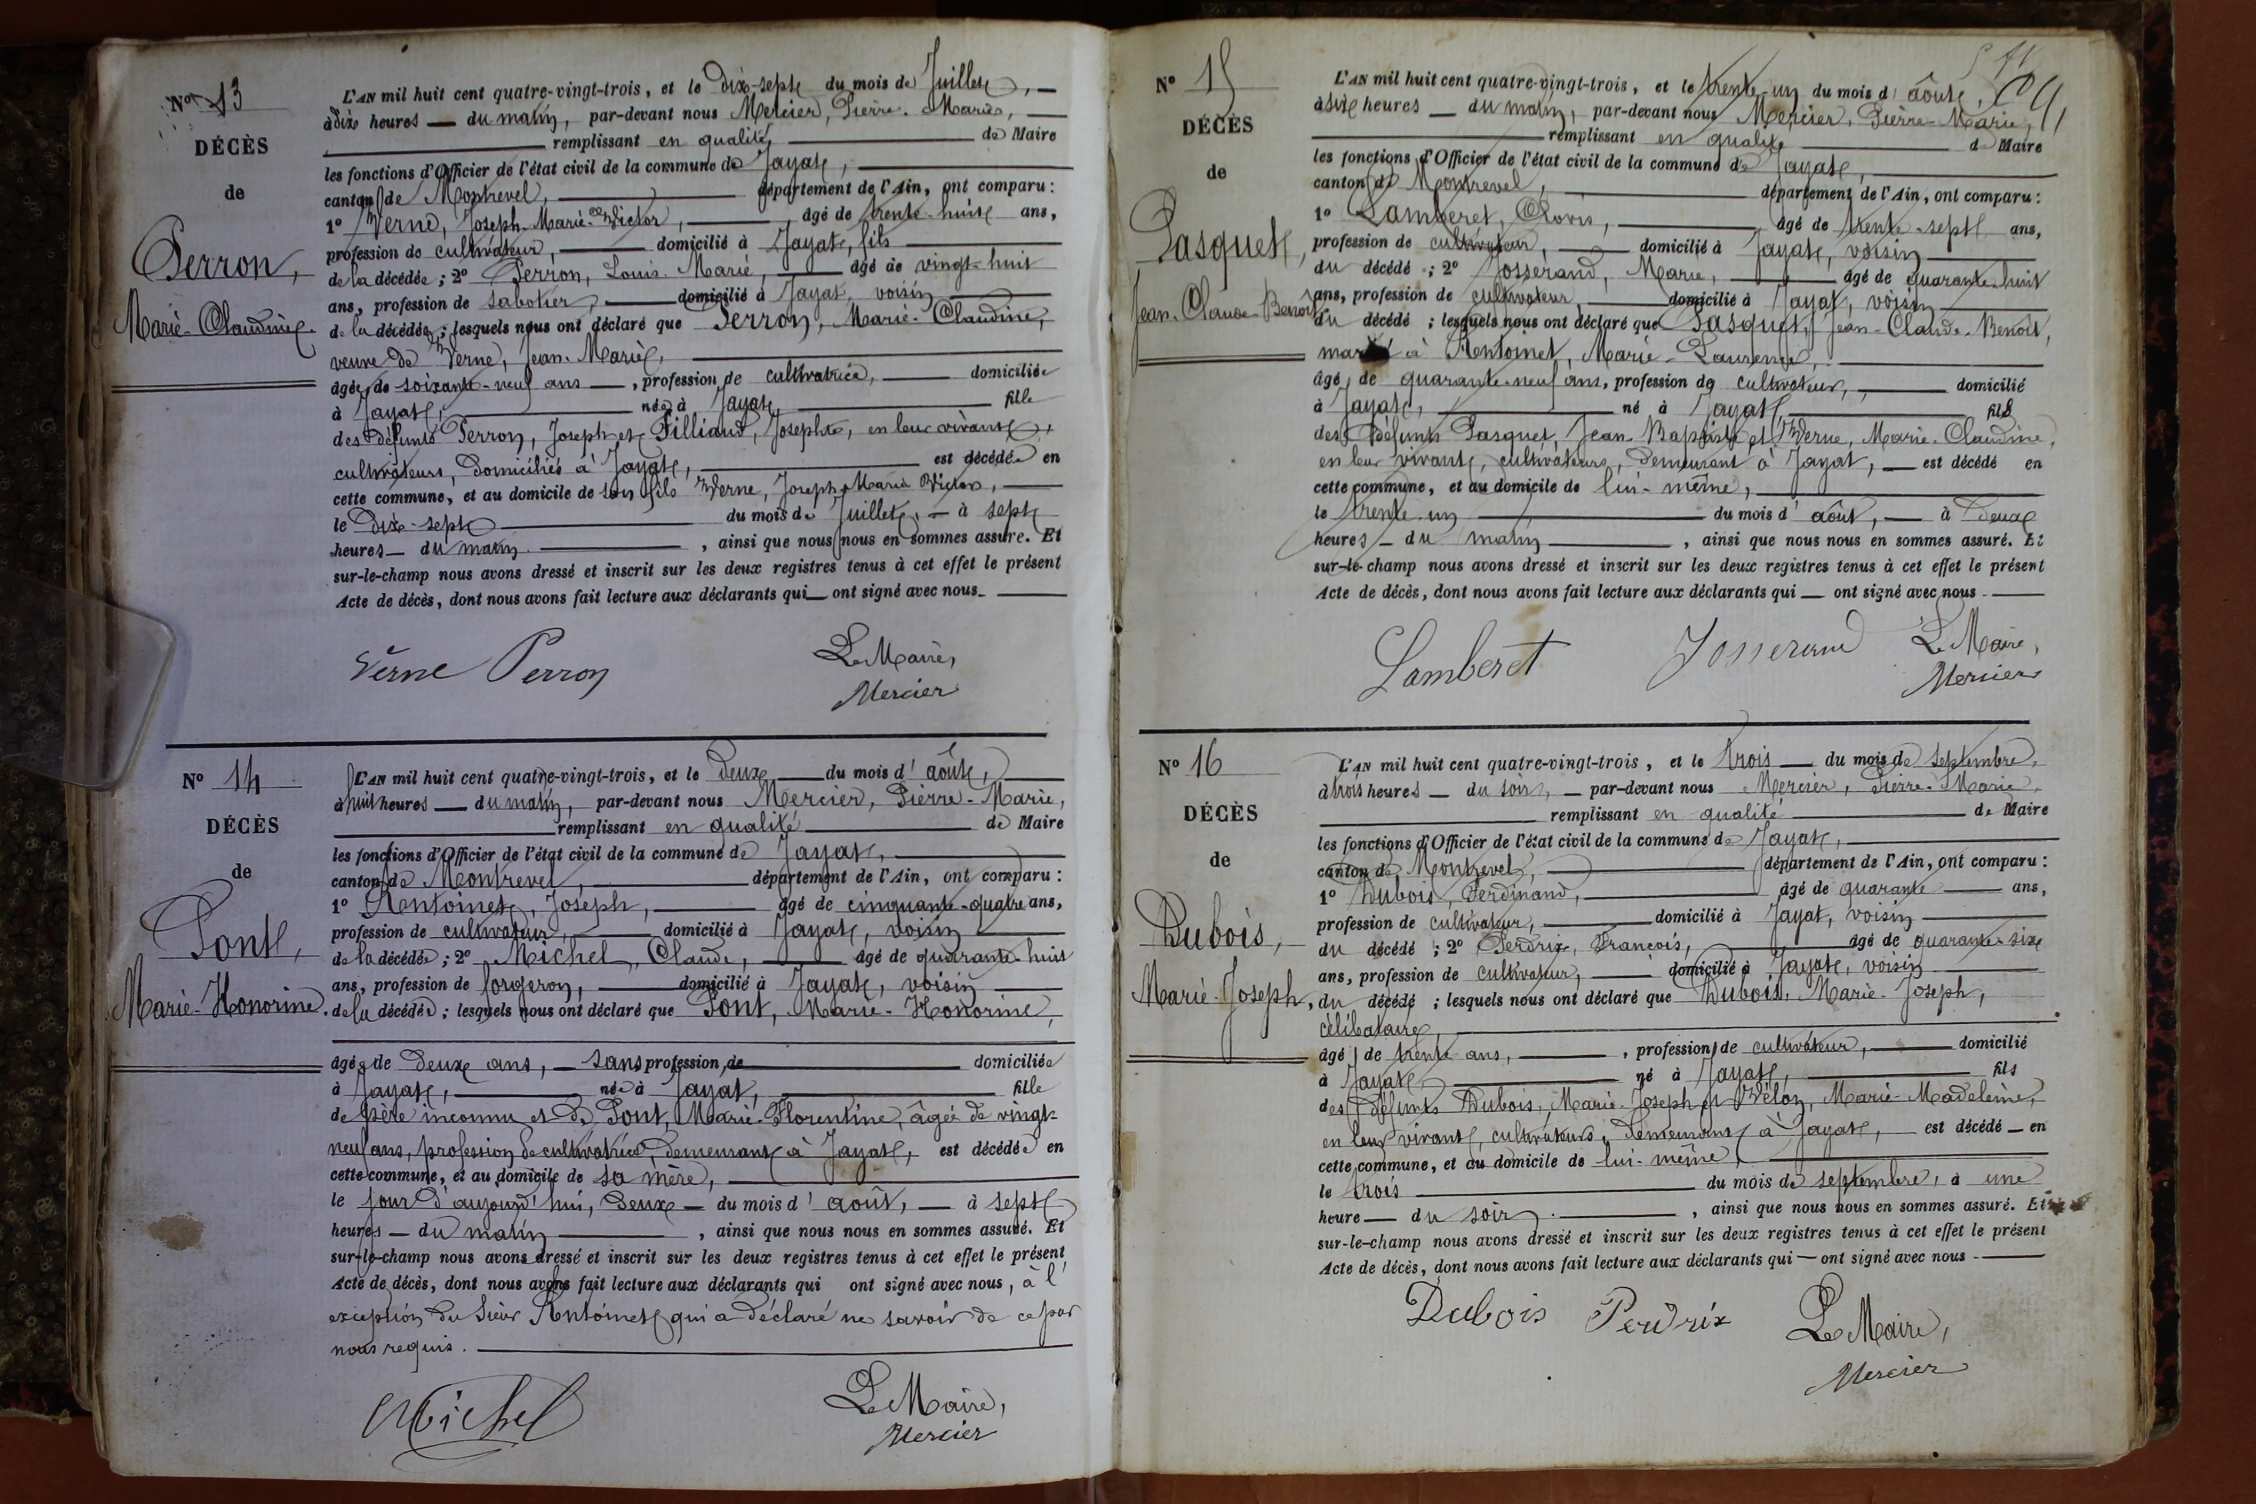 N° 13
DÉCÈS
de
Perron,
Marie-Claudine.
L'AN mil huit cent quatre-vingt-trois, et le dix-sept du mois de Juillet,
à dix heures du matin, par-devant nous Mercier, Pierre-Marie,
remplissant en qualité de Maire
les fonctions d'Officier de l'état civil de la commune de Jayat,
canton de Montrevel, département de l'Ain, ont comparu :
1° Verne, Joseph-Marie-Victor, âgé de trente-huit ans,
profession de cultivateur, domicilié à Jayat, fils
de la décédée ; 2° Perron, Louis-Marie, âgé de vingt-huit
ans, profession de sabotier, domicilié à Jayat, voisin
de la décédée ; lesquels nous ont déclaré que Perron, Marie-Claudine,
veuve de Verne, Jean-Marie,
âgée de soixante-neuf ans, profession de cultivatrice, domiciliée
à Jayat, née à Jayat, fille
des défunts Perron, Joseph et Filliaud, Josephte, en leur vivant,
cultivateurs, domiciliés à Jayat, est décédée en
cette commune, et au domicile de son fils Verne, Joseph-Marie Victor,
le dix-sept du mois de Juillet, à sept
heures du matin, ainsi que nous nous en sommes assuré. Et
sur-le-champ nous avons dressé et inscrit sur les deux registres tenus à cet effet le présent
Acte de décès, dont nous avons fait lecture aux déclarants qui ont signé avec nous.
Verne Perron Le Maire,
Mercier
N° 14
DÉCÈS
de
Pont,
Marie-Honorine.
L'AN mil huit cent quatre-vingt-trois, et le deux du mois d'août,
à huit heures du matin, par-devant nous Mercier, Pierre-Marie,
remplissant en qualité de Maire
les fonctions d'Officier de l'état civil de la commune de Jayat,
canton de Montrevel, département de l'Ain, ont comparu :
1° Antoinet, Joseph, âgé de cinquante-quatre ans,
profession de cultivateur, domicilié à Jayat, voisin
de la décédée ; 2° Michel, Claude, âgé de quarante-huit
ans, profession de forgeron, domicilié à Jayat, voisin
de la décédée ; lesquels nous ont déclaré que Pont, Marie-Honorine,
âgée de deux ans, sans profession, de domiciliée
à Jayat, née à Jayat, fille
de père inconnu et de Pont, Marie-Florentine, âgée de vingt-
neuf ans, profession de cultivatrice, demeurant à Jayat, est décédée en
cette commune, et au domicile de sa mère,
le jour d'aujourd'hui, deux du mois d'août, à sept
heures du matin, ainsi que nous nous en sommes assuré. Et
sur-le-champ nous avons dressé et inscrit sur les deux registres tenus à cet effet le présent
Acte de décès, dont nous avons fait lecture aux déclarants qui ont signé avec nous, à l'
exception du sieur Antoinet qui a déclaré ne savoir de ce par
nous requis.
Michel Le Maire,
Mercier
N° 15
DÉCÈS
de
Pasquet,
Jean-Claude-Benoît
L'AN mil huit cent quatre-vingt-trois, et le trente-un du mois d'août,
à six heures du matin, par-devant nous Mercier, Pierre-Marie,
remplissant en qualité de Maire
les fonctions d'Officier de l'état civil de la commune de Jayat,
canton de Montrevel, département de l'Ain, ont comparu :
1° Lamberet, Clovis, âgé de trente-sept ans,
profession de cultivateur, domicilié à Jayat, voisin
du décédé ; 2° Josserand, Marie, âgé de quarante-huit
ans, profession de cultivateur, domicilié à Jayat, voisin
du décédé ; lesquels nous ont déclaré que Pasquet, Jean-Claude-Benoît,
marié à Antoinet, Marie-Laurence,
âgé de quarante-neuf ans, profession de cultivateur, domicilié
à Jayat, né à Jayat, fils
des défunts Pasquet, Jean-Baptiste et Verne, Marie-Claudine,
en leur vivant, cultivateurs, demeurant à Jayat, est décédé en
cette commune, et au domicile de lui-même,
le trente-un du mois d'août, à deux
heures du matin, ainsi que nous nous en sommes assuré. Et
sur-le-champ nous avons dressé et inscrit sur les deux registres tenus à cet effet le présent
Acte de décès, dont nous avons fait lecture aux déclarants qui ont signé avec nous.
Lamberet Josserand Le Maire,
Mercier
N° 16
DÉCÈS
de
Dubois,
Marie-Joseph,
L'AN mil huit cent quatre-vingt-trois, et le trois du mois de septembre,
à trois heures du soir, par-devant nous Mercier, Pierre-Marie,
remplissant en qualité de Maire
les fonctions d'Officier de l'état civil de la commune de Jayat,
canton de Montrevel, département de l'Ain, ont comparu :
1° Dubois, Ferdinand, âgé de quarante ans,
profession de cultivateur, domicilié à Jayat, voisin
du décédé ; 2° Perdrix, François, âgé de quarante-six
ans, profession de cultivateur, domicilié à Jayat, voisin
du décédé ; lesquels nous ont déclaré que Dubois, Marie-Joseph,
célibataire,
âgé de trente ans, profession de cultivateur, domicilié
à Jayat, né à Jayat, fils
des défunts Dubois, Marie-Joseph et Vélon, Marie-Madeleine,
en leur vivant, cultivateurs, demeurant à Jayat, est décédé en
cette commune, et au domicile de lui-même,
le trois du mois de septembre, à une
heure du soir, ainsi que nous nous en sommes assuré. Et
sur-le-champ nous avons dressé et inscrit sur les deux registres tenus à cet effet le présent
Acte de décès, dont nous avons fait lecture aux déclarants qui ont signé avec nous.
Dubois Perdrix Le Maire,
Mercier